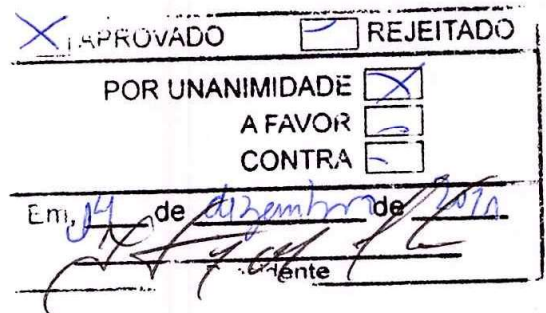 X APROVADO REJEITADO
POR UNANIMIDADE X
A FAVOR -
CONTRA -
Em, 14 de dezembro de